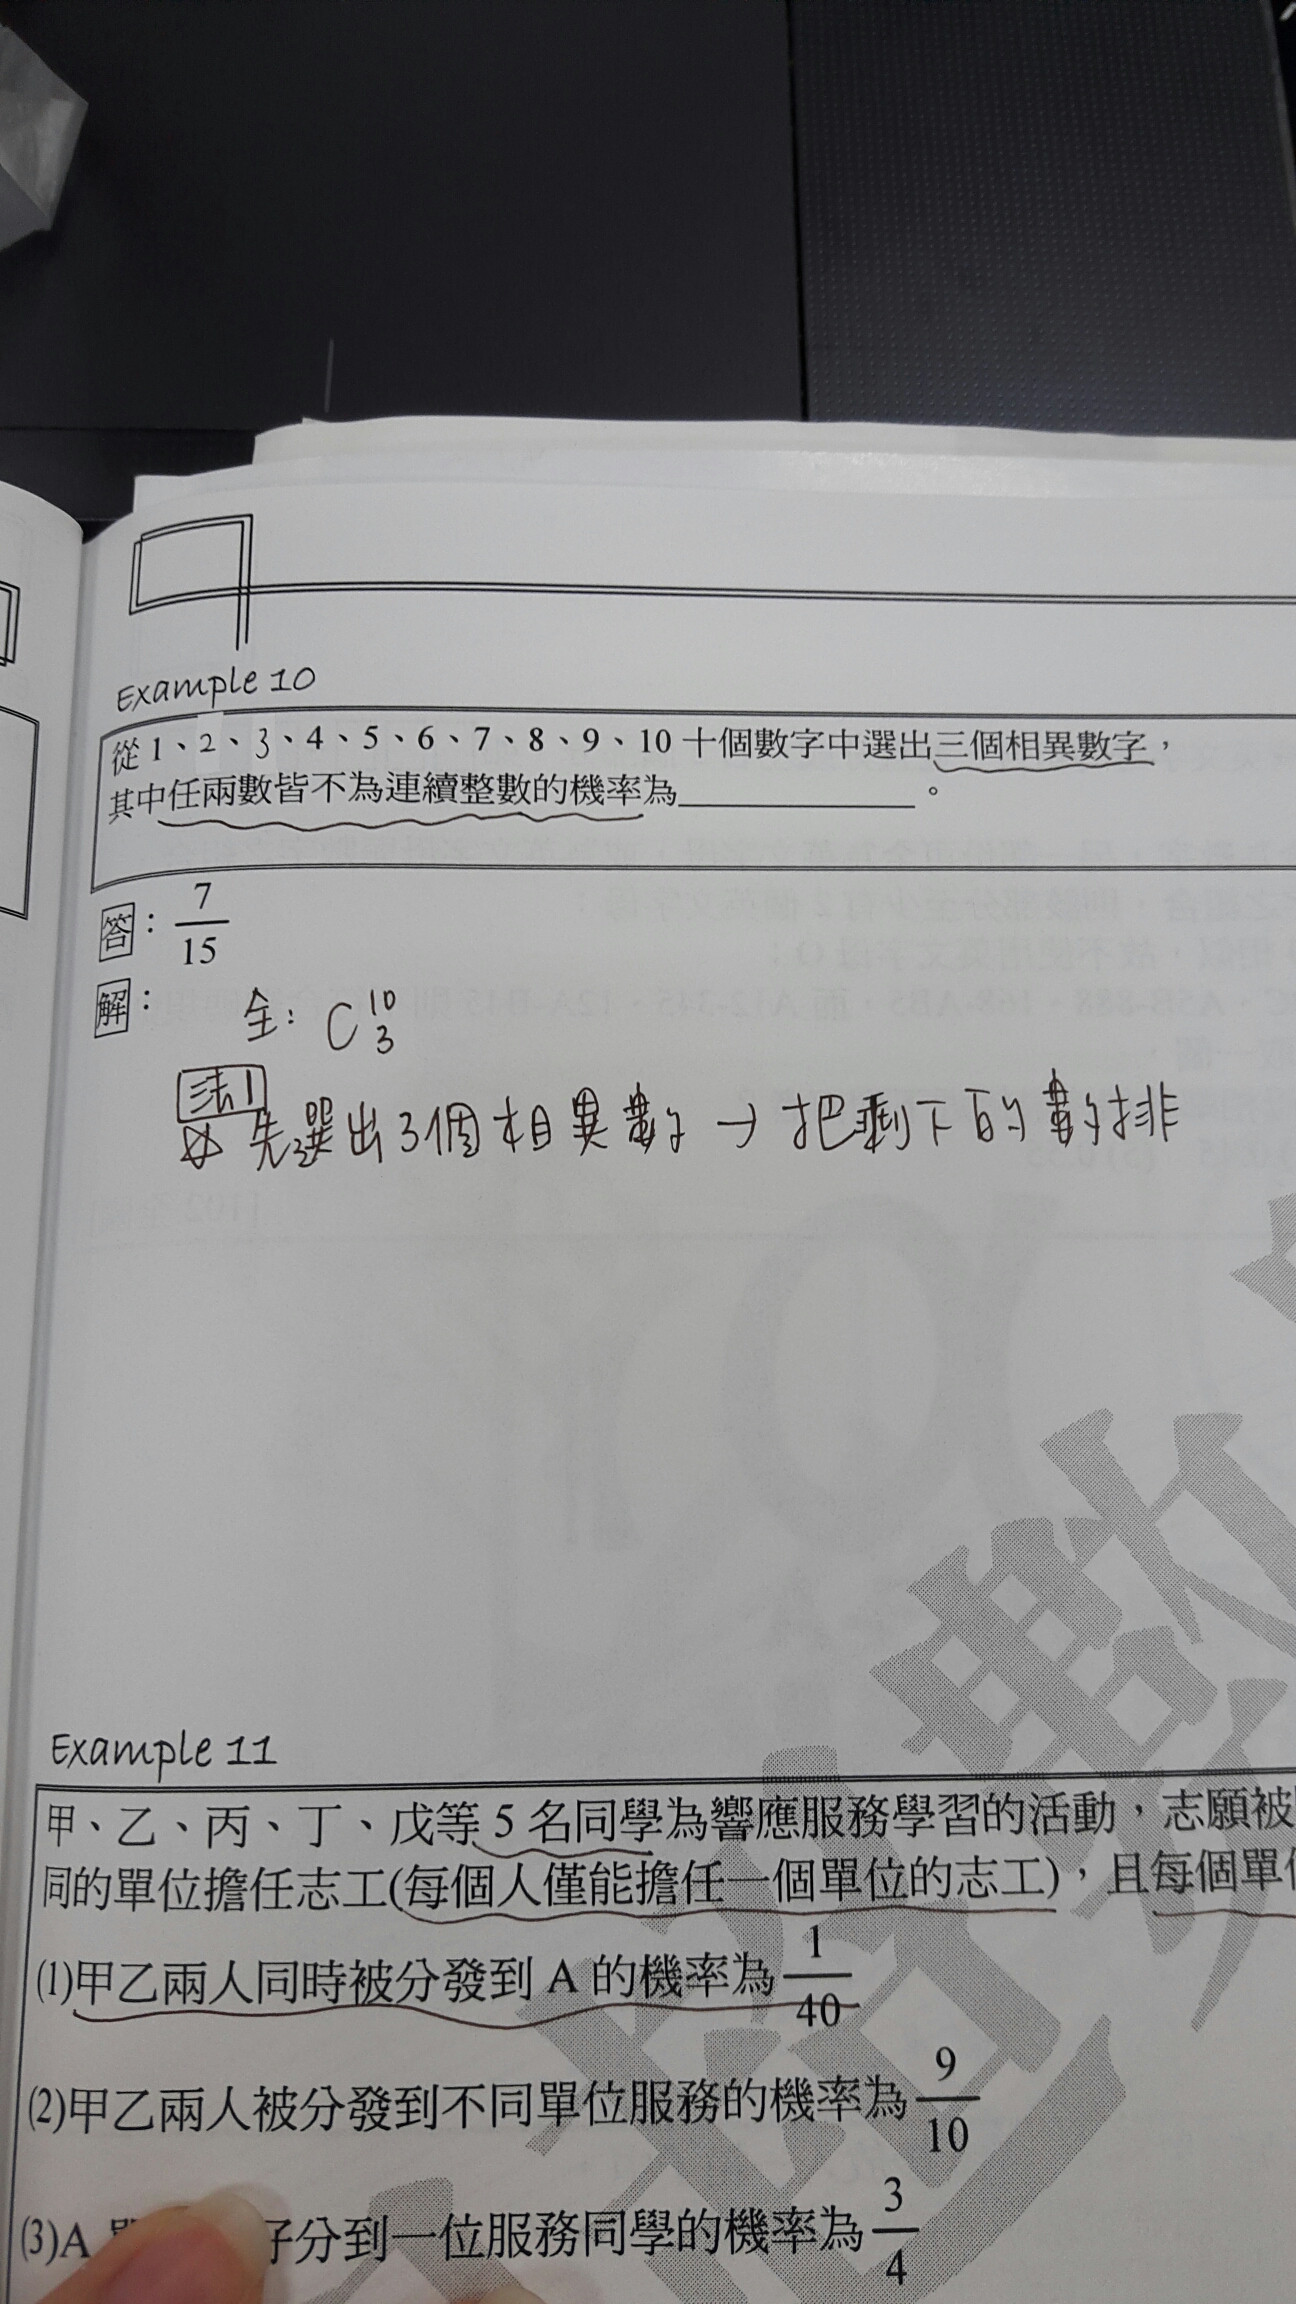 Example 10
從 1、2、3、4、5、6、7、8、9、10 十個數字中選出三個相異數字，
其中任兩數皆不為連續整數的機率為＿＿＿＿＿。
答：7/15
解：
全：C 10 3
法1
先選出3個相異數 → 把剩下的數排
Example 11
甲、乙、丙、丁、戊等 5 名同學為響應服務學習的活動，志願被
同的單位擔任志工(每個人僅能擔任一個單位的志工)，且每個單位
(1)甲乙兩人同時被分發到 A 的機率為 1/40
(2)甲乙兩人被分發到不同單位服務的機率為 9/10
(3)A 分到一位服務同學的機率為 3/4